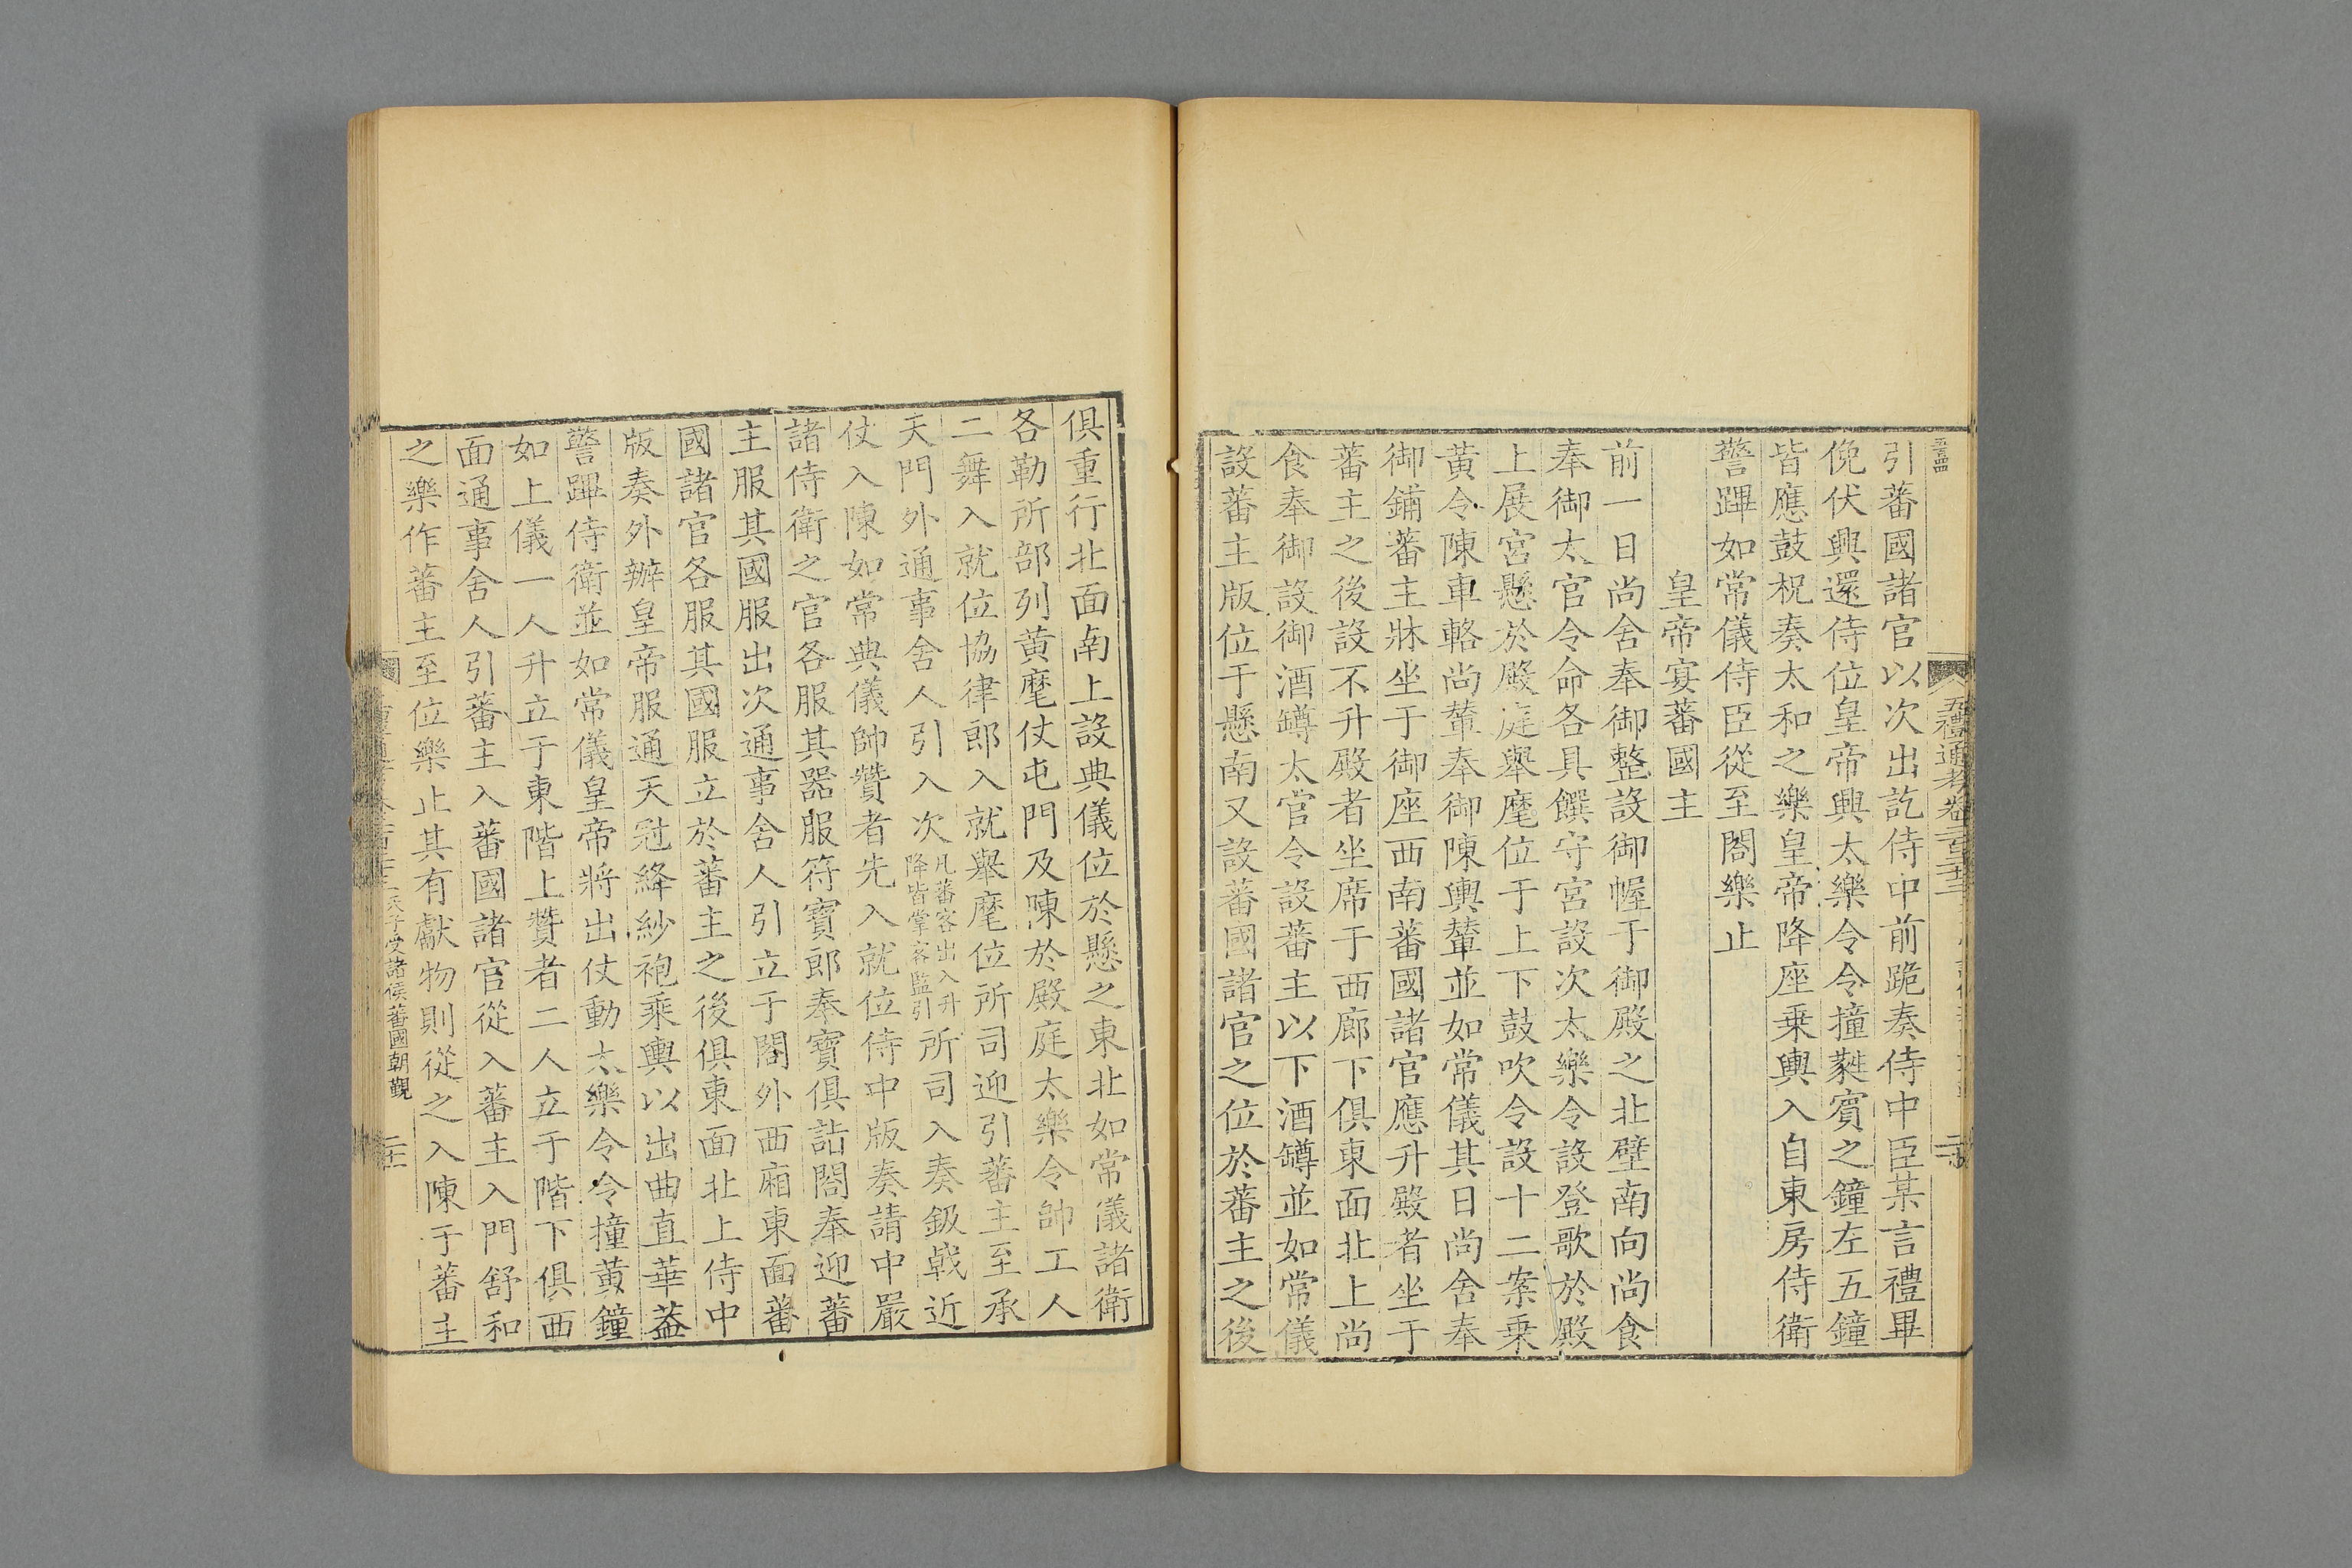 五禮通考卷二百二十二
引蕃國諸官以次出訖侍中前跪奏侍中臣某言禮畢
俛伏興還侍位皇帝興太樂令令撞蕤賓之鐘左五鐘
皆應鼓柷奏太和之樂皇帝降座乗輿入自東房侍衛
警蹕如常儀侍臣從至閤樂止
皇帝宴蕃國主
前一日尚舍奉御整設御幄于御殿之北壁南向尚食
奉御太官令命各具饌守宮設次太樂令設登歌於殿
上展宮懸於殿庭舉麾位于上下鼓吹令設十二案乗
黃令陳車輅尚輦奉御陳輿輦並如常儀其日尚舍奉
御鋪蕃主牀坐于御座西南蕃國諸官應升殿者坐于
蕃主之後設不升殿者坐席于西廊下俱東面北上尚
食奉御設御酒罇太官令設蕃主以下酒罇並如常儀
設蕃主版位于懸南又設蕃國諸官之位於蕃主之後
俱重行北面南上設典儀位於懸之東北如常儀諸衛
各勒所部列黃麾仗屯門及陳於殿庭太樂令帥工人
二舞入就位協律郎入就舉麾位所司迎引蕃主至承
天門外通事舍人引入次凡蕃客出入升降皆掌客監引所司入奏鈒戟近
仗入陳如常典儀帥贊者先入就位侍中版奏請中嚴
諸侍衛之官各服其器服符寶郎奉寶俱詣閤奉迎蕃
主服其國服出次通事舍人引立于閤外西廂東面蕃
國諸官各服其國服立於蕃主之後俱東面北上侍中
版奏外辦皇帝服通天冠絳紗袍乘輿以出曲直華蓋
警蹕侍衛並如常儀皇帝將出仗動太樂令令撞黃鐘
如上儀一人升立于東階上贊者二人立于階下俱西
面通事舍人引蕃主入蕃國諸官從入蕃主入門舒和
之樂作蕃主至位樂止其有獻物則從之入陳于蕃主
天子受諸侯蕃國朝覲